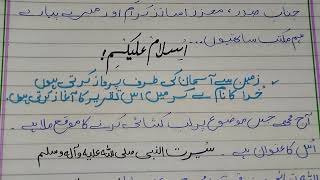 جناب صدر، معزز اساتذہ کرام اور میرے پیارے
ہم مکتب ساتھیوں...
اسلام علیکم!
زمین سے آسمان کی طرف پرواز کرتی ہوں
خدا کا نام لے کر میں اس تقریر کا آغاز کرتی ہوں
آج مجھے جس موضوع پر لب کشائی کرنے کا موقع ملا ہے۔
اُس کا عنوان ہے۔ سیرت النبی صلی اللہ علیہ وآلہ وسلم